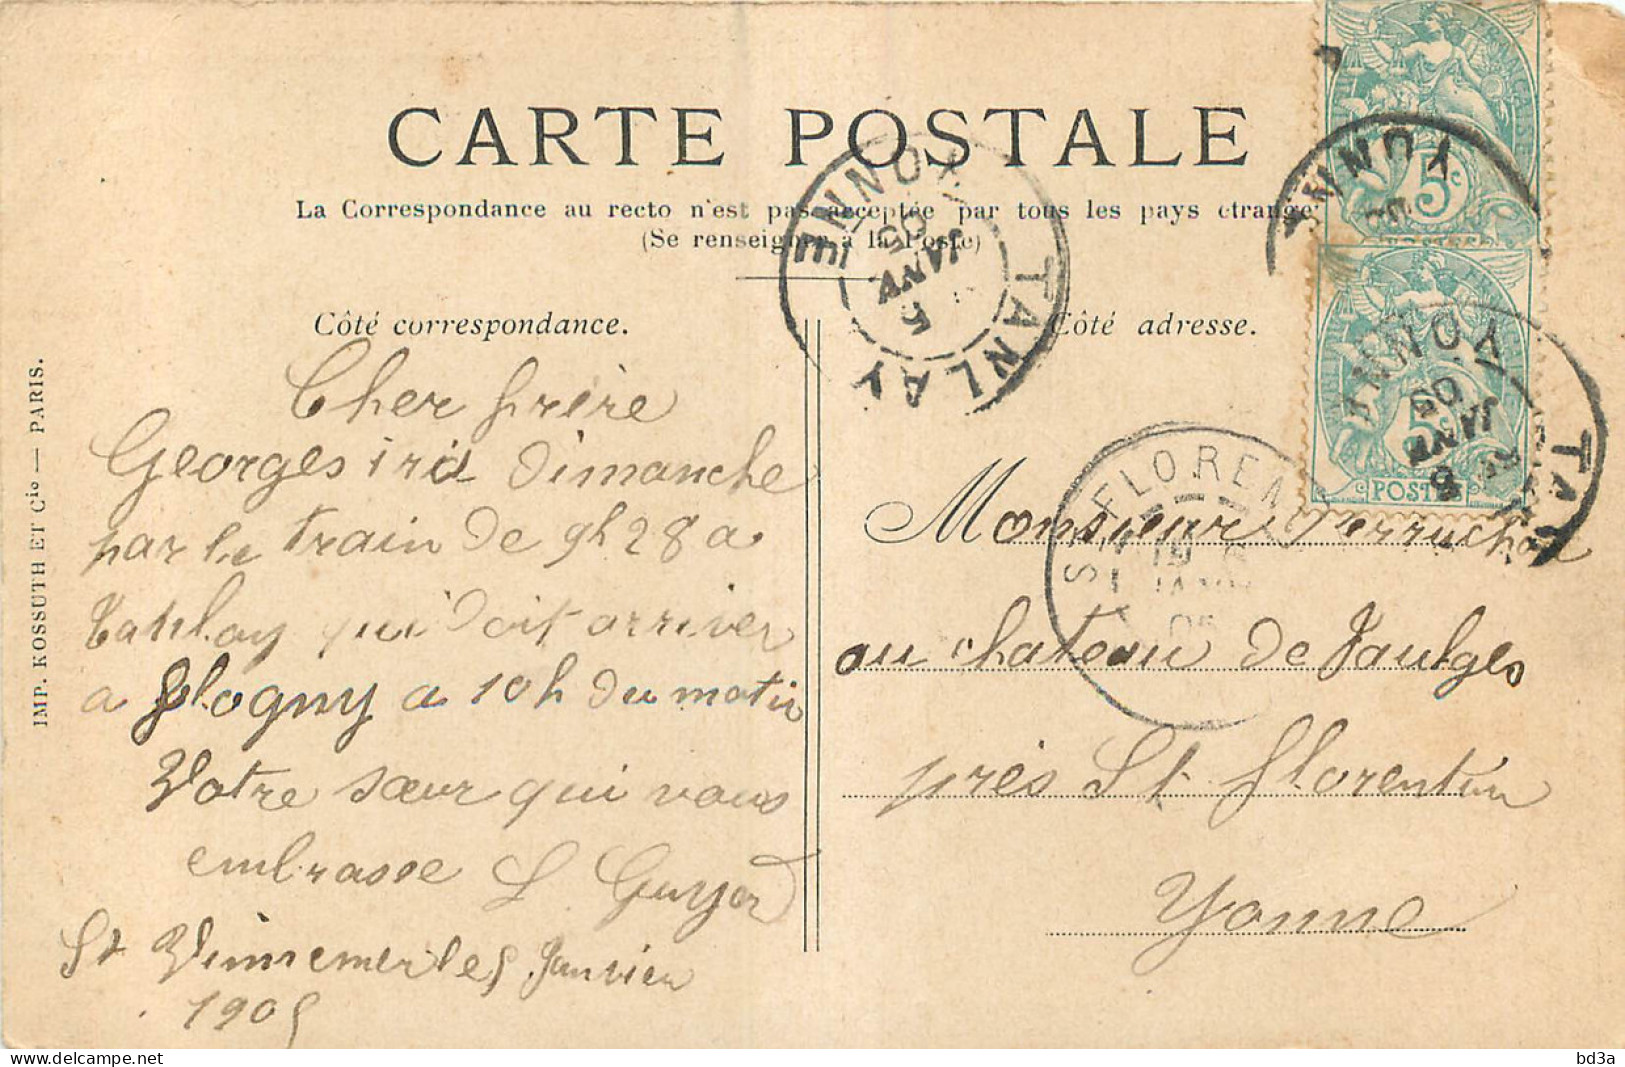 CARTE POSTALE
La Correspondance au recto n'est pas acceptée par tous les pays étrange
(Se renseigner à la Poste)
Côté correspondance.
Côté adresse.
IMP. KOSSUTH ET Cie — PARIS.
Cher frère
Georges ira dimanche
par le train de 9h 28 a
Tanlay qui doit arriver
a flogny a 10h du matin
Votre sœur qui vous
embrasse L Guyon
St Vinnemer le 5 Janvier
1905
Monsieur Perruchon
au chateau de Jaulges
près St florentin
Yonne
TANLAY
YONNE
5
JANV
05
YONNE
05
5c
YONNE
TA
5
JANV
05
5c
POSTE
ST FLOREN
bd3a